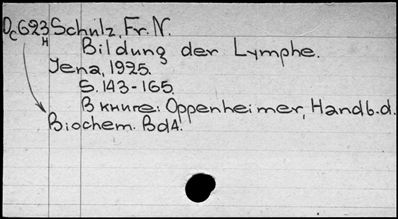 Dc623 Schulz, Fr. N.
H
Bildung der Lymphe.
Jena, 1925.
S. 143-165.
В книге: Oppenheimer, Handb. d.
Biochem. Bd4.